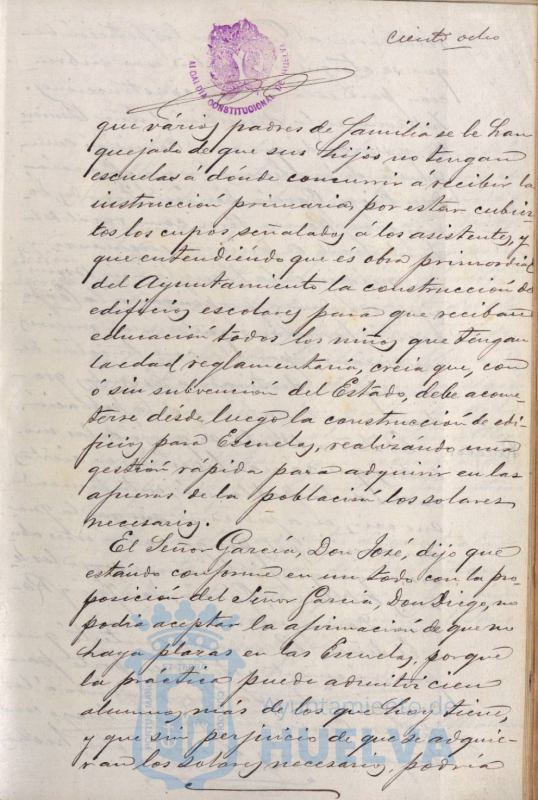 ciento ocho
ALCALDIA CONSTITUCIONAL DE HUELVA
que vários padres de familia se le han
quejado de que sus hijos no tengan
escuelas a dónde concurrir á recibir la
instrucción primaria, por estar cubier
tos los cupos señalados á los asistentes, y
que entendiéndo que és obra primordial
del Ayuntamiento la construcción de
edificios escolares para que reciban
educación todos los niños que tengan
la edad reglamentaría, creía que, con
ó sin subvención del Estado, debe acome
terse desde luego la construcción de edi
ficios para Escuelas, realizándo una
gestión rápida para adquirir en las
afueras de la población los solares
necesarios.
El Señor García, Don José, dijo que
estándo conforme en un todo con la pro
posición del Señor García, Don Diego, no
podía aceptar la afirmación de que no
haya plazas en las Escuelas, porque
la practica puede admitir cien
alumnos más de los que hoy tiene,
y que sin perjuicio de que se adquie-
ran los solares necesarios, podría
Ayuntamiento de
HUELVA